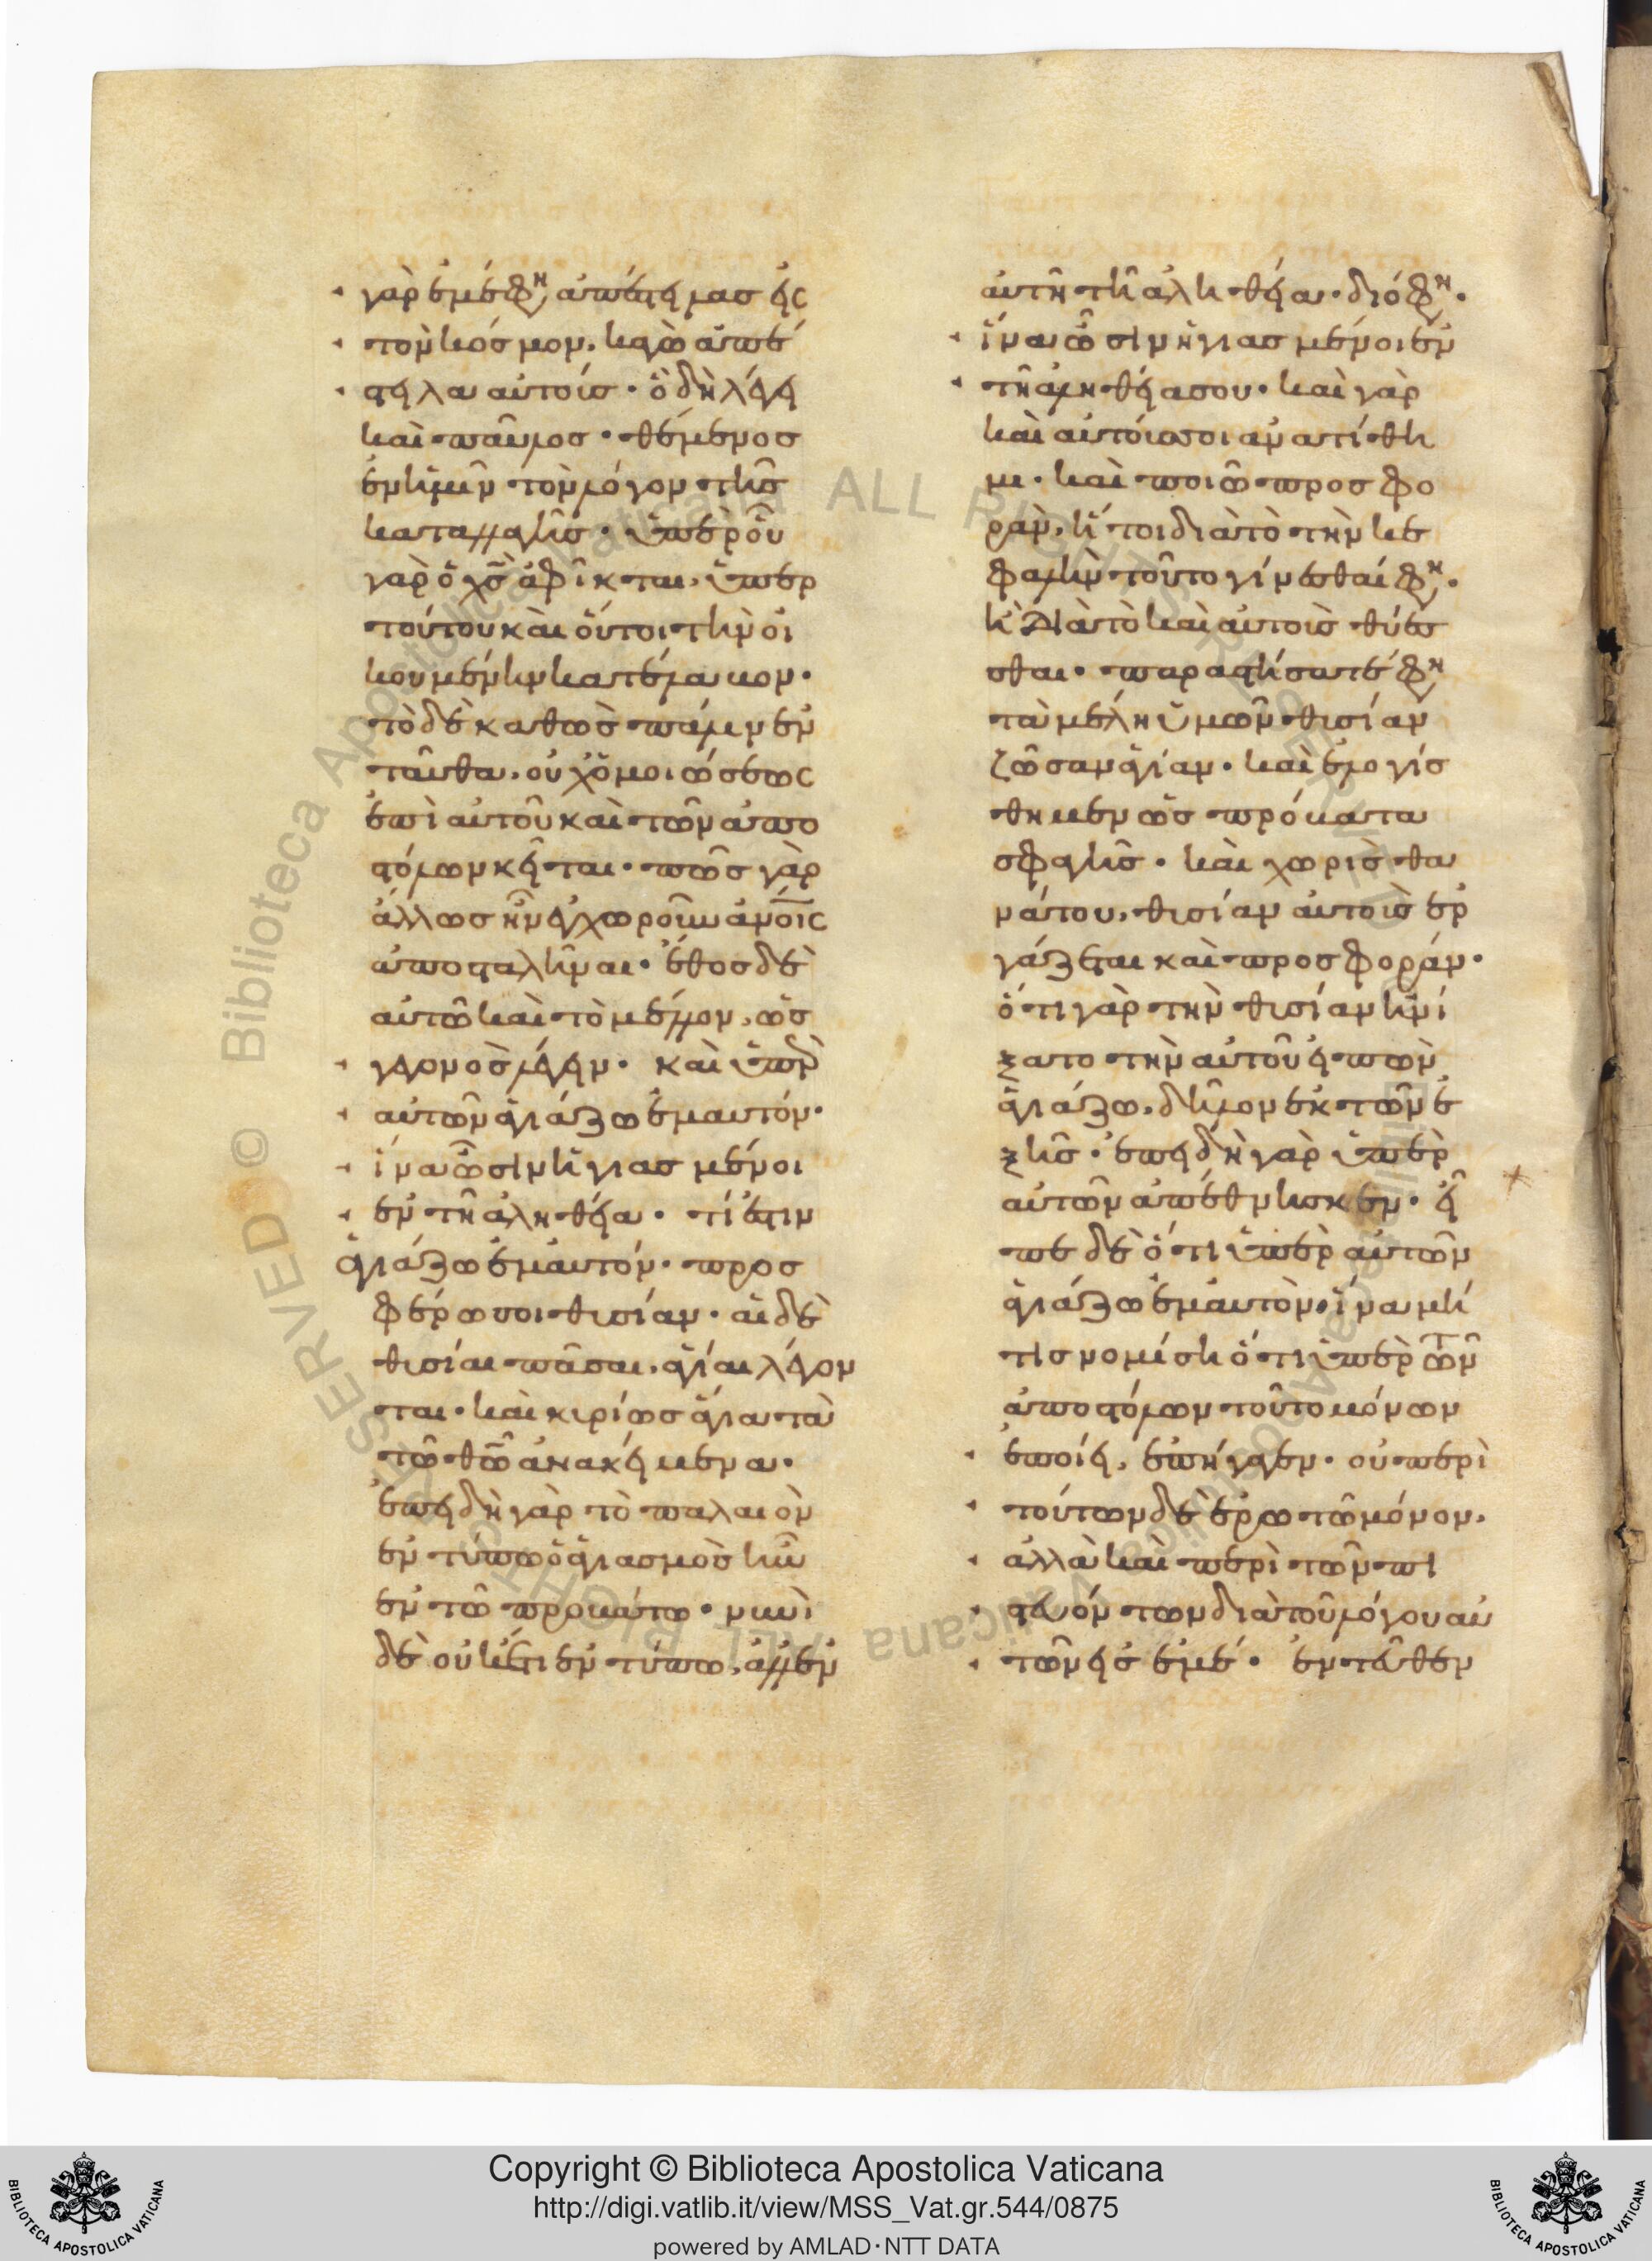 γὰρ ἐμέ φη ἀπέστειλας εἰς
τὸν κόσμον, κἀγὼ ἀπέ
στειλα αὐτούς· ὃ δηλοῖ
καὶ παῦλος· θέμενος
ἐν ἡμῖν τὸν λόγον τῆς
καταλλαγῆς· ὑπὲρ οὗ
γὰρ ὁ χς ἀφῖκται, ὑπὲρ
τούτου καὶ οὗτοι τὴν οἰ
κουμένην κατέλαβον·
τὸ δὲ καθὼς πάλιν ἐν
ταῦθα, οὐχ ὁμοιώσεως
ἐπὶ αὐτοῦ καὶ τῶν ἀπο
στόλων κεῖται· πῶς γὰρ
ἄλλως ἦν ἐγχωροῦν ἀνοις
ἀποσταλῆναι· ἔθος δὲ
αὐτῷ καὶ τὸ μέλλον, ὡς
γεγονὸς λέγειν· καὶ ὑπὲρ
αὐτῶν ἁγιάζω ἐμαυτόν·
ἵνα ὦσιν ἡγιασμένοι
ἐν τῇ ἀληθείᾳ· τί ἐστιν
ἁγιάζω ἐμαυτόν· προσ
φέρω σοι θυσίαν· αἱ δὲ
θυσίαι πᾶσαι, ἅγιαι λέγον
ται· καὶ κυρίως ἅγια τὰ
τῷ θῷ ἀνακείμενα·
ἐπειδὴ γὰρ τὸ παλαιὸν
ἐν τύπῳ ὁ ἁγιασμὸς ἦν
ἐν τῷ προβάτῳ· νυνὶ
δὲ οὐκέτι ἐν τύπῳ, ἀλλ' ἐν
αὐτῇ τῇ ἀληθείᾳ· διό φη·
ἵνα ὦσιν ἡγιασμένοι ἐν
τῇ ἀληθείᾳ σου· καὶ γὰρ
καὶ αὐτούς σοι ἀνατίθη
μι· καὶ ποιῶ προσφο
ράν, ἤτοι διὰ τὸ τὴν κε
φαλὴν τοῦτο γίνεσθαί φη·
ἢ διὰ τὸ καὶ αὐτοὺς θύεσ
σθαι· παραστήσατέ φη
τὰ μέλη ὑμῶν θυσίαν
ζῶσαν ἁγίαν· καὶ ἐλογίσ
θημεν ὡς πρόβατα
σφαγῆς· καὶ χωρὶς θα
νάτου, θυσίαν αὐτοὺς ἐρ
γάζεται καὶ προσφοράν·
ὅτι γὰρ τὴν θυσίαν ἠνί
ξατο τὴν αὐτοῦ εἰπὼν
ἁγιάζω, δῆλον ἐκ τῶν ἑ
ξῆς· ἐπειδὴ γὰρ ὑπὲρ
αὐτῶν ἀπέθνησκεν· εἶ
πε δὲ ὅτι ὑπὲρ αὐτῶν
ἁγιάζω ἐμαυτὸν, ἵνα μή
τις νομίσῃ ὅτι ὑπὲρ τῶν
ἀποστόλων τοῦτο μόνων
ἐποίει, ἐπήγαγεν· οὐ περὶ
τούτων δὲ ἐρωτῶ μόνον,
ἀλλὰ καὶ περὶ τῶν πι
στευόντων διὰ τοῦ λόγου αὐ
τῶν εἰς ἐμέ· ἐντεῦθεν
Copyright © Biblioteca Apostolica Vaticana
http://digi.vatlib.it/view/MSS_Vat.gr.544/0875
powered by AMLAD·NTT DATA